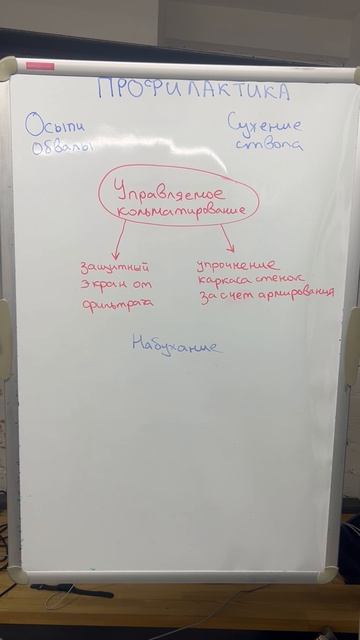 ПРОФИЛАКТИКА
Осыпи
обвалы
Сужение
ствола
Управляемое
кольматирование
защитный
экран от
фильтрата
упрочнение
каркаса стенок
за счет армирования
Набухание